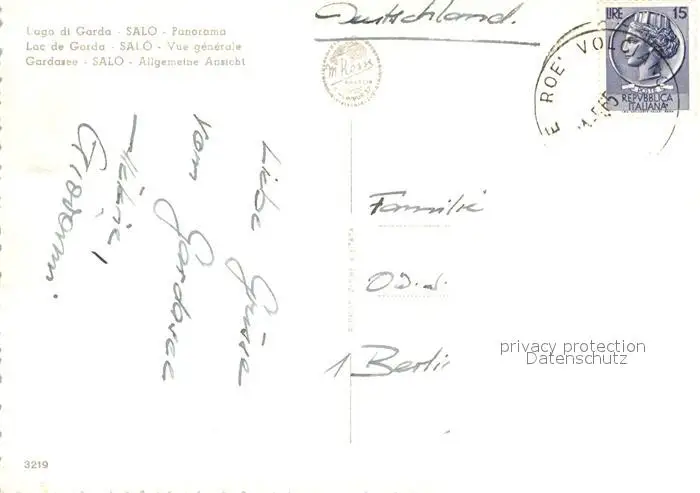 Lago di Garda - SALÒ - Panorama
Lac de Garda - SALÒ - Vue générale
Gardasee - SALÒ - Allgemeine Ansicht
Deutschland.
LIRE 15
POSTE
REPVBBLICA
ITALIANA
ROE' VOLC
Liebe Grüsse
vom Gardasee
Giovanni.
Familie
1 Berlin
privacy protection
Datenschutz
3219